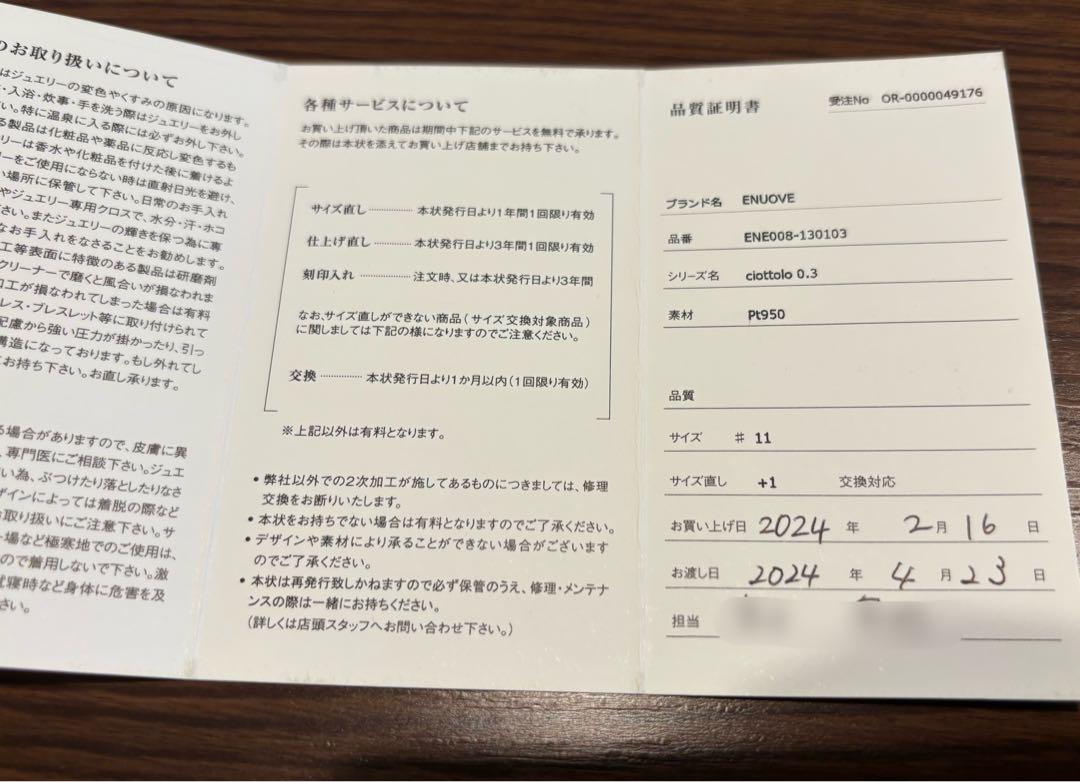 のお取り扱いについて
はジュエリーの変色やくすみの原因になります。
・入浴・炊事・手を洗う際はジュエリーをお外し
い。特に温泉に入る際には必ずお外し下さい。
る製品は化粧品や薬品に反応し変色するも
リーは香水や化粧品を付けた後に着けるよ
リーをご使用にならない時は直射日光を避け、
い場所に保管して下さい。日常のお手入れ
やジュエリー専用クロスで、水分・汗・ホコ
ださい。またジュエリーの輝きを保つ為に専
なお手入れをなさることをお勧めします。
工等表面に特徴のある製品は研磨剤
クリーナーで磨くと風合いが損なわれま
加工が損なわれてしまった場合は有料
レス・ブレスレット等に取り付けられて
配慮から強い圧力が掛かったり、引っ
構造になっております。もし外れてし
てお持ち下さい。お直し承ります。
る場合がありますので、皮膚に異
、専門医にご相談下さい。ジュエ
い為、ぶつけたり落としたりなさ
ザインによっては着脱の際など
お取り扱いにご注意下さい。サ
ー場など極寒地でのご使用は、
ので着用しないで下さい。激
就寝時など身体に危害を及
さい。
各種サービスについて
お買い上げ頂いた商品は期間中下記のサービスを無料で承ります。
その際は本状を添えてお買い上げ店舗までお持ち下さい。
サイズ直し ………… 本状発行日より1年間1回限り有効
仕上げ直し ………… 本状発行日より3年間1回限り有効
刻印入れ ………… 注文時、又は本状発行日より3年間
なお、サイズ直しができない商品(サイズ交換対象商品)
に関しましては下記の様になりますのでご注意ください。
交換 ………… 本状発行日より1か月以内(1回限り有効)
※上記以外は有料となります。
• 弊社以外での2次加工が施してあるものにつきましては、修理
交換をお断りいたします。
• 本状をお持ちでない場合は有料となりますのでご了承ください。
• デザインや素材により承ることができない場合がございます
のでご了承ください。
• 本状は再発行致しかねますので必ず保管のうえ、修理・メンテナ
ンスの際は一緒にお持ちください。
(詳しくは店頭スタッフへお問い合わせ下さい。)
品質証明書 受注No OR-0000049176
ブランド名 ENUOVE
品番 ENE008-130103
シリーズ名 ciottolo 0.3
素材 Pt950
品質
サイズ # 11
サイズ直し +1 交換対応
お買い上げ日 2024 年 2月 16 日
お渡し日 2024 年 4 月 23 日
担当